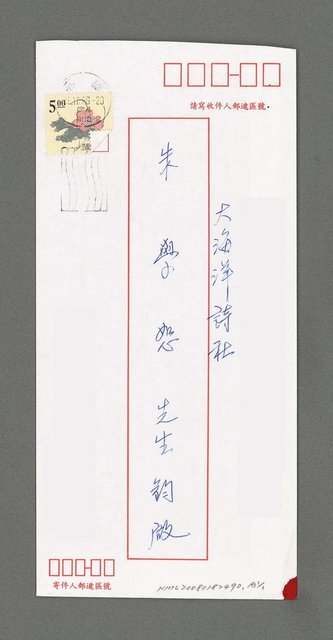 5.00
請寫收件人郵遞區號.
大海洋詩社
朱學恕先生鈞啟
寄件人郵遞區號
NMTL20080182490,